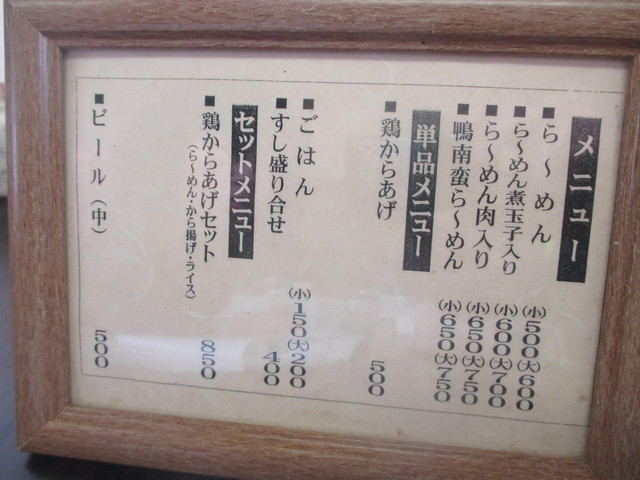 メニュー
■ら～めん (小)500(大)600
■ら～めん煮玉子入り (小)600(大)700
■ら～めん肉入り (小)650(大)750
■鴨南蛮ら～めん (小)650(大)750
単品メニュー
■鶏からあげ 500
■ごはん (小)150(大)200
■すし盛り合せ 400
セットメニュー
■鶏からあげセット 850
(ら～めん・から揚げ・ライス)
■ビール(中) 500